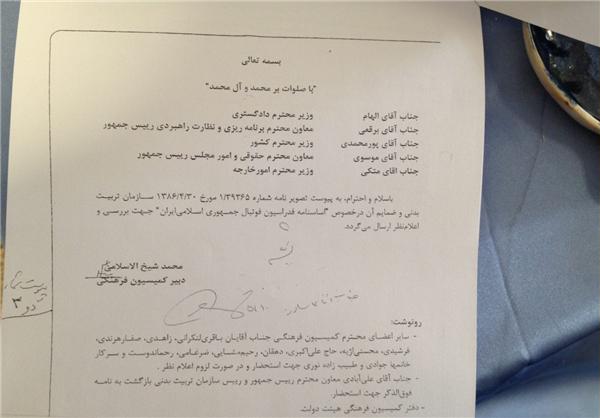 بسمه تعالی
"با صلوات بر محمد و آل محمد"
جناب آقای الهام وزیر محترم دادگستری
جناب آقای برقعی معاون محترم برنامه ریزی و نظارت راهبردی رییس جمهور
جناب آقای پورمحمدی وزیر محترم کشور
جناب آقای موسوی معاون محترم حقوقی و امور مجلس رییس جمهور
جناب آقای متکی وزیر محترم امورخارجه
باسلام و احترام، به پیوست تصویر نامه شماره ۱/۳۹۳۶۵ مورخ ۱۳۸۶/۴/۳۰ سازمان تربیت
بدنی و ضمایم آن درخصوص "اساسنامه فدراسیون فوتبال جمهوری اسلامی‌ایران" جهت بررسی و
اعلام‌نظر ارسال می‌گردد.
محمد شیخ الاسلامی
دبیر کمیسیون فرهنگی
پیوست شماره
دو ۳
رونوشت:
- سایر اعضای محترم کمیسیون فرهنگی جناب آقایان باقری‌لنکرانی، زاهدی، صفارهرندی،
فرشیدی، محسنی‌اژیه، حاج علی‌اکبری، دهقان، رحیم‌مشایی، ضرغامی، رحماندوست و سرکار
خانمها جوادی و طبیب زاده نوری جهت استحضار و در صورت لزوم اعلام نظر .
- جناب آقای علی‌آبادی معاون محترم رییس جمهور و رییس سازمان تربیت بدنی بازگشت به نامه
فوق‌الذکر جهت استحضار.
- دفتر کمیسیون فرهنگی هیئت دولت.